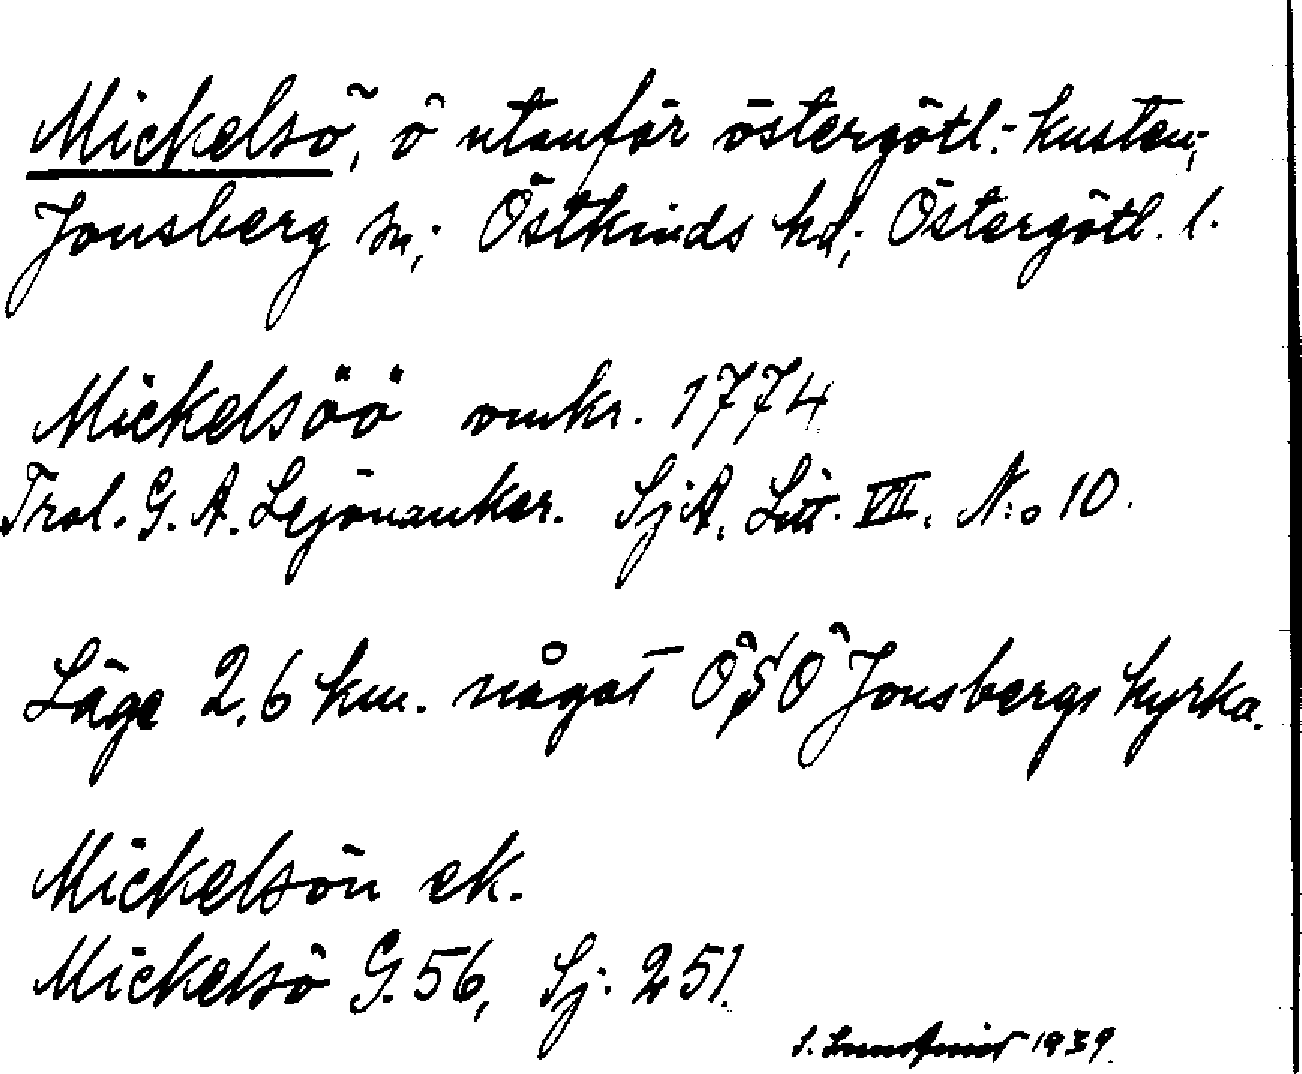 Mickelsö, ö utanför östergötl.-kusten;
Jonsberg sn; Östkinds hd; Östergötl. l.
Mickelsöö omkr. 1774
Trol. G. A. Lejonanker. SjA. Litt. VII. N:o 10.
Läge 2,6 km. något ÖSÖ Jonsbergs kyrka.
Mickelsön ek.
Mickelsö G. 56, Sj. 251.
S. Lundqvist 1939.